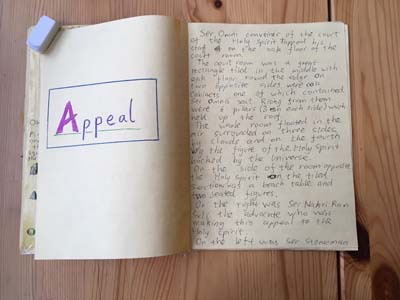 Appeal
Ser Omni convener of the court
of the Holy Spirit tapped his
staff on the oak floor of the
court room.
The court room was a great
rectangle tiled in the middle with
oak floor round the edge on
two opposite sides were oak
cabinets one of which contained
Ser Omni's seat. Rising from them
were 6 pillars (3 on each side) which
held up the roof.
The whole room floated in the
air surrounded on three sides
by clouds and on the fourth
by the figure of the Holy Spirit
backed by the Universe.
On the side of the room opposite
the Holy Spirit on the tiled
section was a bench table and
two seated figures.
On the right was Ser Nakri Ran
Gris the advocate who was
making this appeal to the
Holy Spirit.
On the left was Ser Stoneman